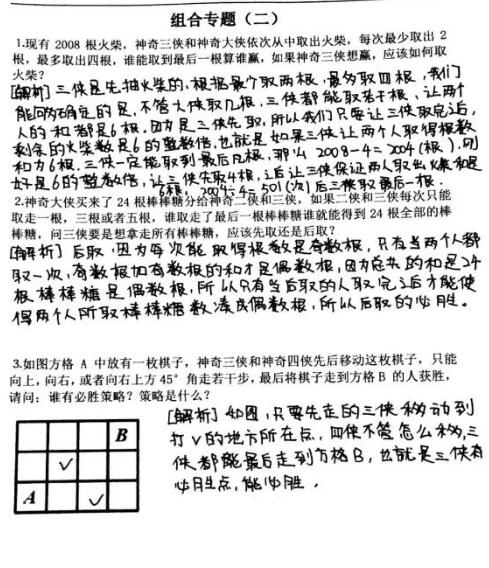 组合专题（二）
1.现有 2008 根火柴，神奇三侠和神奇大侠依次从中取出火柴，每次最少取出 2
根，最多取出四根，谁能取到最后一根算谁赢，如果神奇三侠想赢，应该如何取
火柴？
[解析] 三侠是先抽火柴的，根据最少取两根，最多取四根，我们
能够确定的是，不管大侠取几根，三侠都能取若干根，让两个
人的和都是6根，因为是三侠先取，所以我们只要让三侠取完后，
剩余的火柴数是6的整数倍，也就是如果三侠让两个人取得根数
和为6根，三侠一定能取到最后几根，那么 2008-4=2004(根)，则
好是6的整数倍，让三侠先取4根，之后让三侠保证两人取出火柴和是
6根， 2004÷4=501(次) 后三侠取最后一根.
2.神奇大侠买来了 24 根棒棒糖分给神奇二侠和三侠，如果二侠和三侠每次只能
取走一根，三根或者五根，谁取走了最后一根棒棒糖谁就能得到 24 根全部的棒
棒糖，问三侠要是想拿走所有棒棒糖，应该先取还是后取？
[解析] 后取，因为每次能取得根数是奇数根，只有当两个人都
取一次，奇数根加奇数根的和才是偶数根，因为总共的和是24
根棒棒糖是偶数根，所以只有当后取的人取完之后才能使
得两个人所取棒棒糖数凑成偶数根，所以后取的必胜。
3.如图方格 A 中放有一枚棋子，神奇三侠和神奇四侠先后移动这枚棋子，只能
向上，向右，或者向右上方 45° 角走若干步，最后将棋子走到方格 B 的人获胜，
请问：谁有必胜策略？策略是什么？
[解析] 如图，只要先走的三侠移动到
打√的地方所在点，四侠不管怎么移，三
侠都能最后走到方格B，也就是三侠有
必胜点，能必胜.
B
√
A √